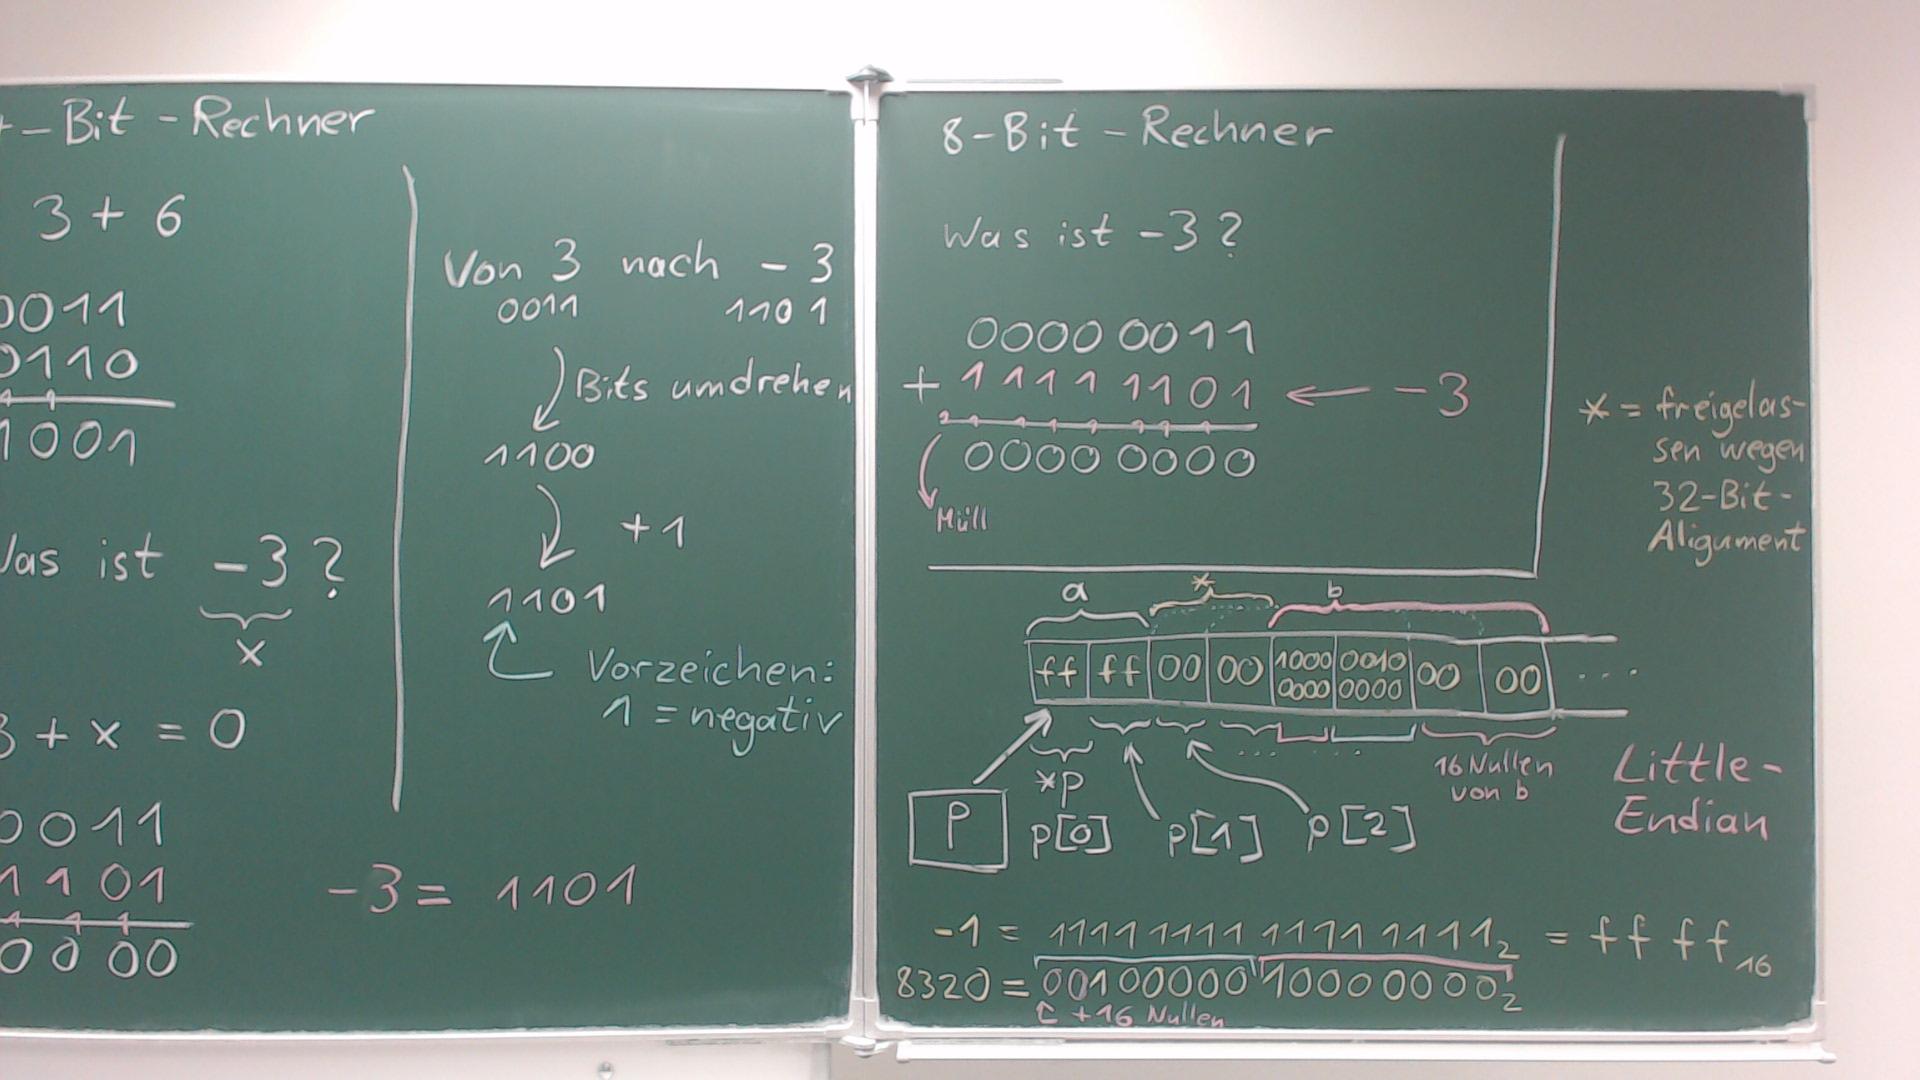 -Bit-Rechner
3 + 6
0011
0110
1001
Was ist -3?
x
3 + x = 0
0011
1101
0000
Von 3 nach -3
0011 1101
Bits umdrehen
1100
+1
1101
Vorzeichen:
1 = negativ
-3 = 1101
8-Bit-Rechner
Was ist -3?
0000 0011
+ 1111 1101 ← -3
0000 0000
Müll
* = freigelas-
sen wegen
32-Bit-
Aligument
a * b
ff ff 00 00 1000 0000 0010 0000 00 00 ...
... ...
*p
16 Nullen
von b
P p[0] p[1] p[2]
Little-
Endian
-1 = 1111 1111 1111 1111₂ = ff ff₁₆
8320 = 00100000 10000000₂
+16 Nullen